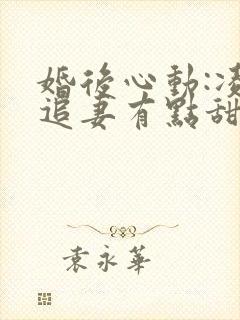 婚後心動:凌
追妻有點甜
袁永華